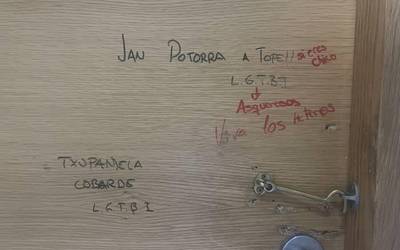 JAN POTORRA A TOPE!! si eres chico
L.G.T.B.I
Asquerosos
Viva los heteros
TXUPAMELA
COBARDE
L.G.T.B I